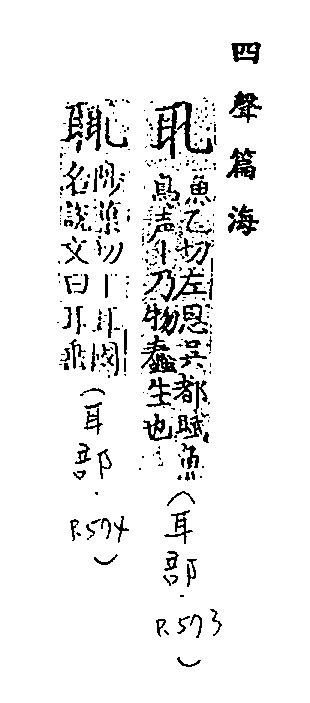 四聲篇海
耴
魚乙切左思吳都賦魚
鳥声丨乃物蠢生也
(耳部.
P.573)
陟葉切丨耳國
名說文曰耳垂
(耳部.
P.574)